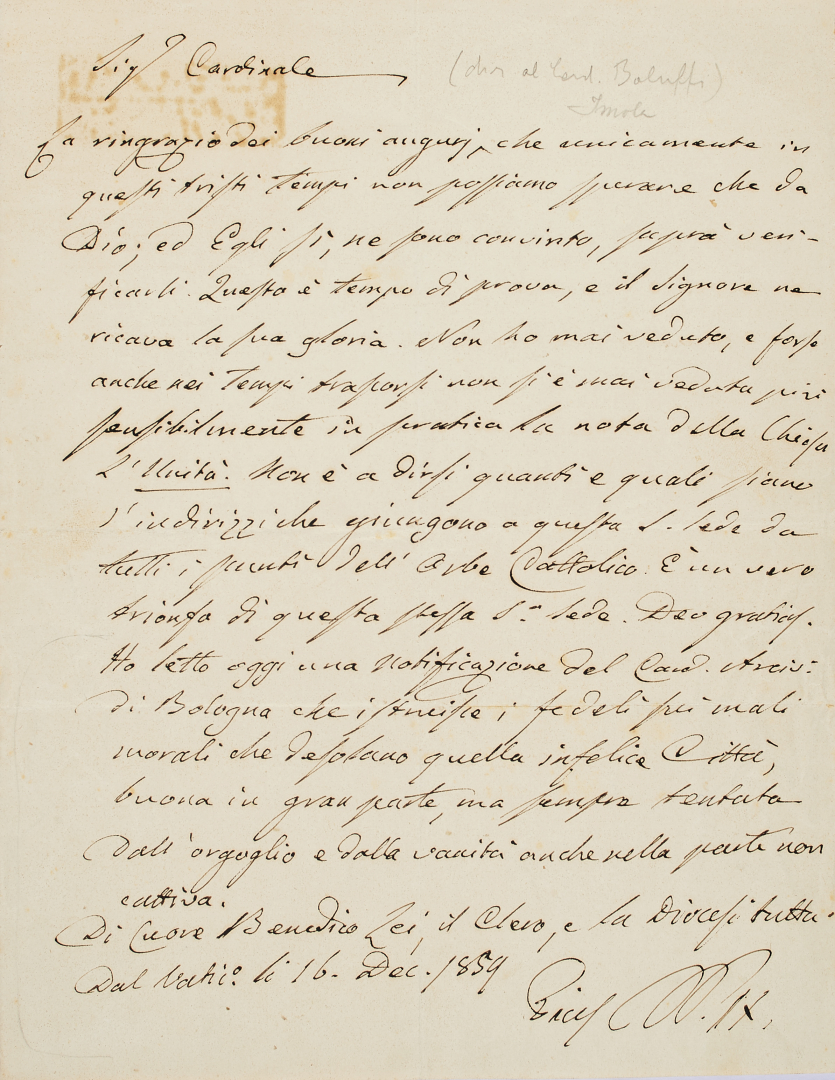 Sigr Cardinale
(dir. al Card. Baluffi)
Imola
La ringrazio dei buoni augurj, che unicamente in
questi tristi tempi non possiamo sperare che da
Dio; ed Egli sì, ne sono convinto, saprà veri-
ficarli. Questo è tempo di prova, e il Signore ne
ricava la sua gloria. Non ho mai veduto, e forse
anche nei tempi trascorsi non si è mai veduta più
sensibilmente in pratica la nota della Chiesa
L'Unità. Non è a dirsi quanti e quali siano
l'indirizzi che giungono a questa S. Sede da
tutti i punti dell'Orbe Cattolico. È un vero
trionfo di questa stessa Sa Sede. Deo gratias.
Ho letto oggi una Notificazione del Card. Arciv:
di Bologna che istruisce i fedeli sui mali
morali che desolano quella infelice Città,
buona in gran parte, ma sempre tentata
dall'orgoglio e dalla vanità anche nella parte non
cattiva.
Di Cuore Benedico Lei, il Clero, e la Diocesi tutta.
Dal Vatico. li 16. Dec. 1859
Pius PP. IX.